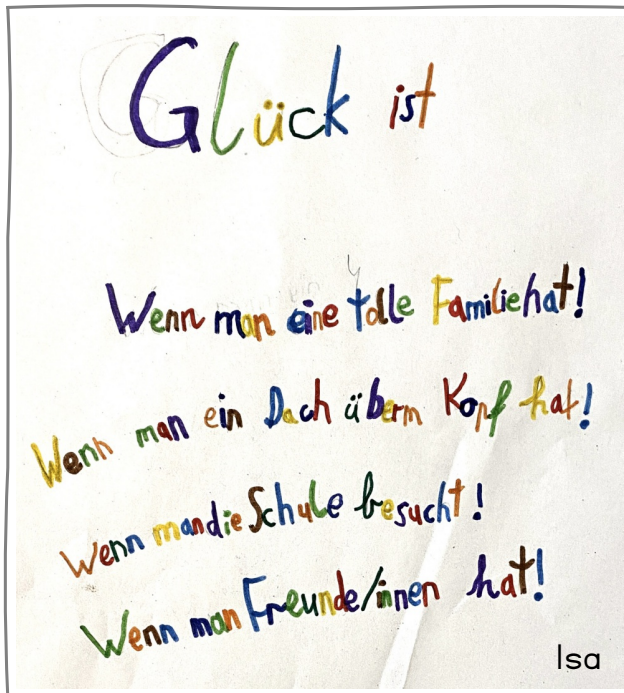 Glück ist
Wenn man eine tolle Familie hat!
Wenn man ein Dach überm Kopf hat!
Wenn man die Schule besucht!
Wenn man Freunde/innen hat!
Isa